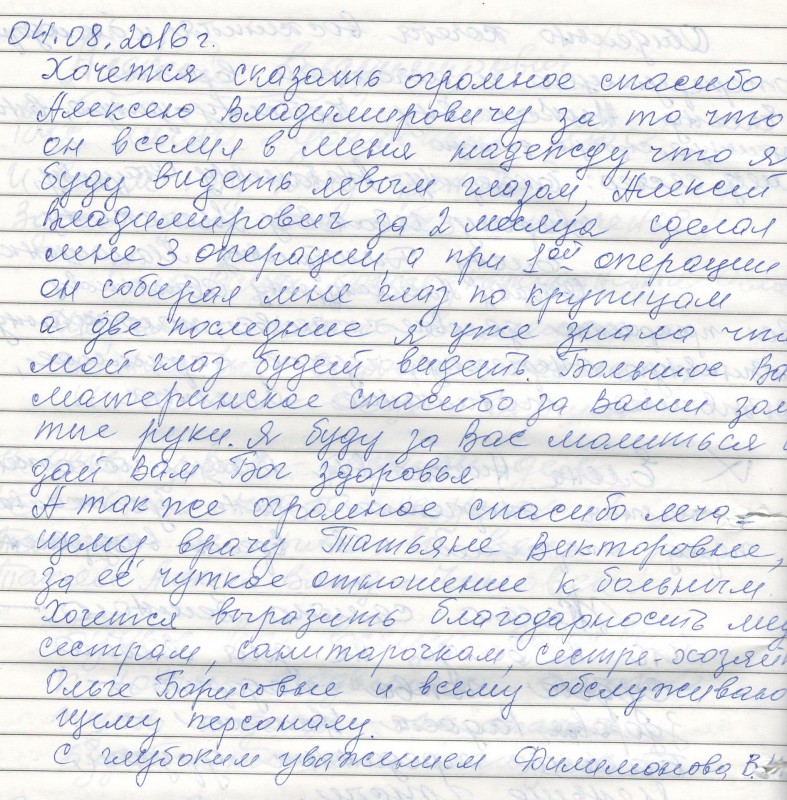 04.08.2016г.
Хочется сказать огромное спасибо
Алексею Владимировичу за то что
он вселил в меня надежду, что я
буду видеть левым глазом, Алексей
Владимирович за 2 месяца сделал
мне 3 операции, а при 1ой операции
он собирал мне глаз по крупицам
а две последние я уже знала что
мой глаз будет видеть. Большое Ва
материнское спасибо за Ваши зол
тые руки. Я буду за Вас молиться
дай Вам Бог здоровья
А так же огромное спасибо леча=
щему врачу Татьяне Викторовне,
за её чуткое отношение к больным.
Хочется выразить благодарность мед
сестрам, санитарочкам, сестре-хозяй
Ольге Борисовне и всему обслуживаю
щему персоналу.
С глубоким уважением Филимонова В.